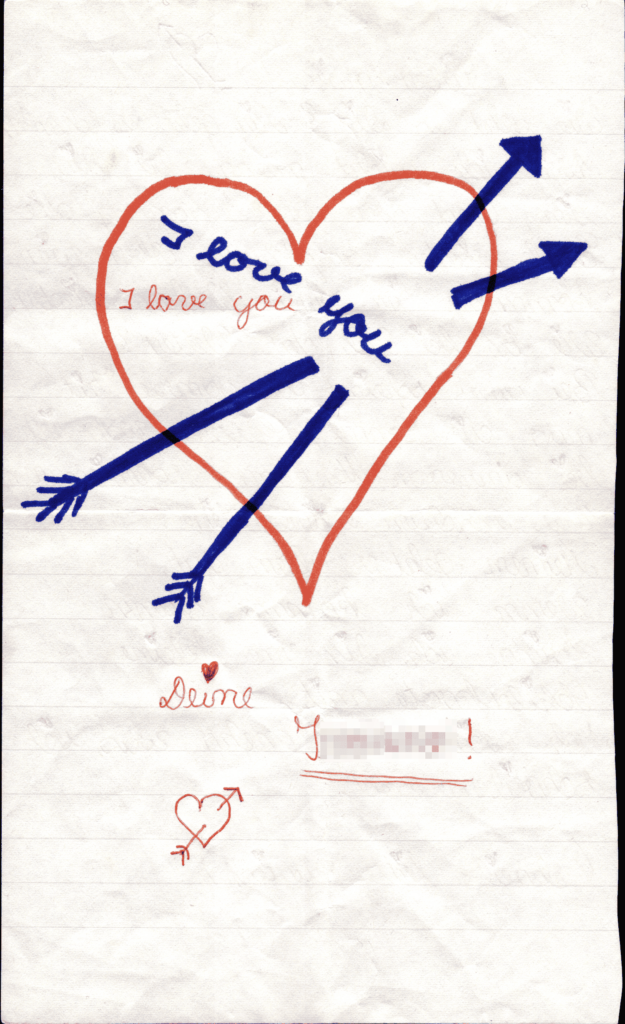 I love you
I love you
Deine